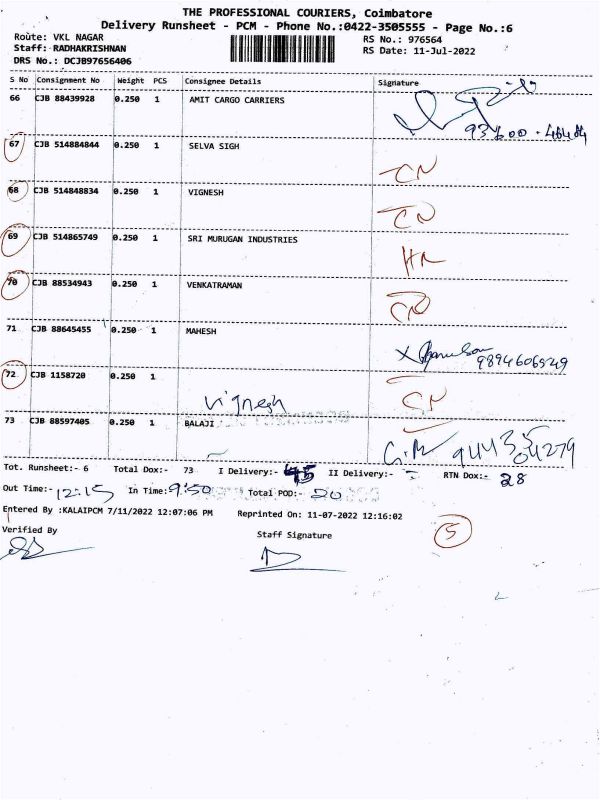 THE PROFESSIONAL COURIERS, Coimbatore
Delivery Runsheet - PCM - Phone No.:0422-3505555 - Page No.:6
Route: VKL NAGAR RS No.: 976564
Staff: RADHAKRISHNAN RS Date: 11-Jul-2022
DRS No.: DCJB97656406
S No Consignment No Weight PCS Consignee Details Signature
66 CJB 88439928 0.250 1 AMIT CARGO CARRIERS
67 CJB 514884844 0.250 1 SELVA SIGH
CN
68 CJB 514848834 0.250 1 VIGNESH
CN
69 CJB 514865749 0.250 1 SRI MURUGAN INDUSTRIES
70 CJB 88534943 0.250 1 VENKATRAMAN
71 CJB 88645455 0.250 1 MAHESH
9894606949
72 CJB 1158720 0.250 1
Vignesh CN
73 CJB 88597405 0.250 1 BALAJI
Tot. Runsheet:- 6 Total Dox:- 73 I Delivery:- 45 II Delivery:- - RTN Dox:- 28
Out Time:- 12:15 In Time:- 9:50 Total POD:- 20
Entered By :KALAIPCM 7/11/2022 12:07:06 PM Reprinted On: 11-07-2022 12:16:02
Verified By Staff Signature
5